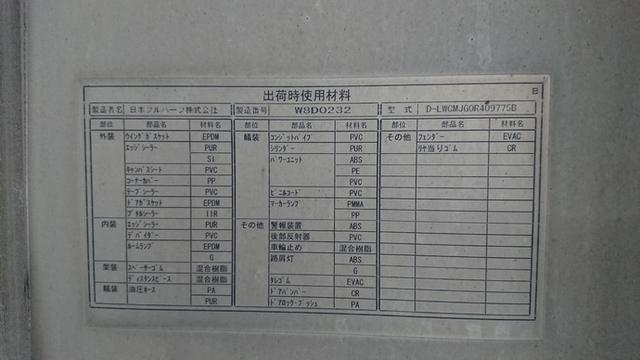 出荷時使用材料
B
製造者名 日本フルハーフ株式会社 製造番号 W8D0232 型式 D-LWCMJG0R409775B
部位 部品名 材料名 部位 部品名 材料名 部位 部品名 材料名
外装 ウイングガスケット EPDM 艤装 コンジットパイプ PVC その他 フェンダー EVAC
エッジシーラー PUR シリンダー PUR リヤ当りゴム CR
SI パワーユニット ABS
キャンバスシート PVC PE
コーナーカバー PP PVC
テープシーラー PVC ビニルコード PVC
ドアガスケット EPDM マーカーランプ PMMA
ブチルシーラー IIR PP
内装 エッジシーラー PUR その他 警報装置 ABS
デバイダー PVC 後部反射器 PVC
ルームランプ EPDM 車輪止め 混合樹脂
G 路肩灯 ABS
架装 スペーサーゴム 混合樹脂 G
ディスタンスピース 混合樹脂 タレゴム EVAC
艤装 油圧ホース PA ドアバンパー CR
PUR ドアロック・ブッシュ PA